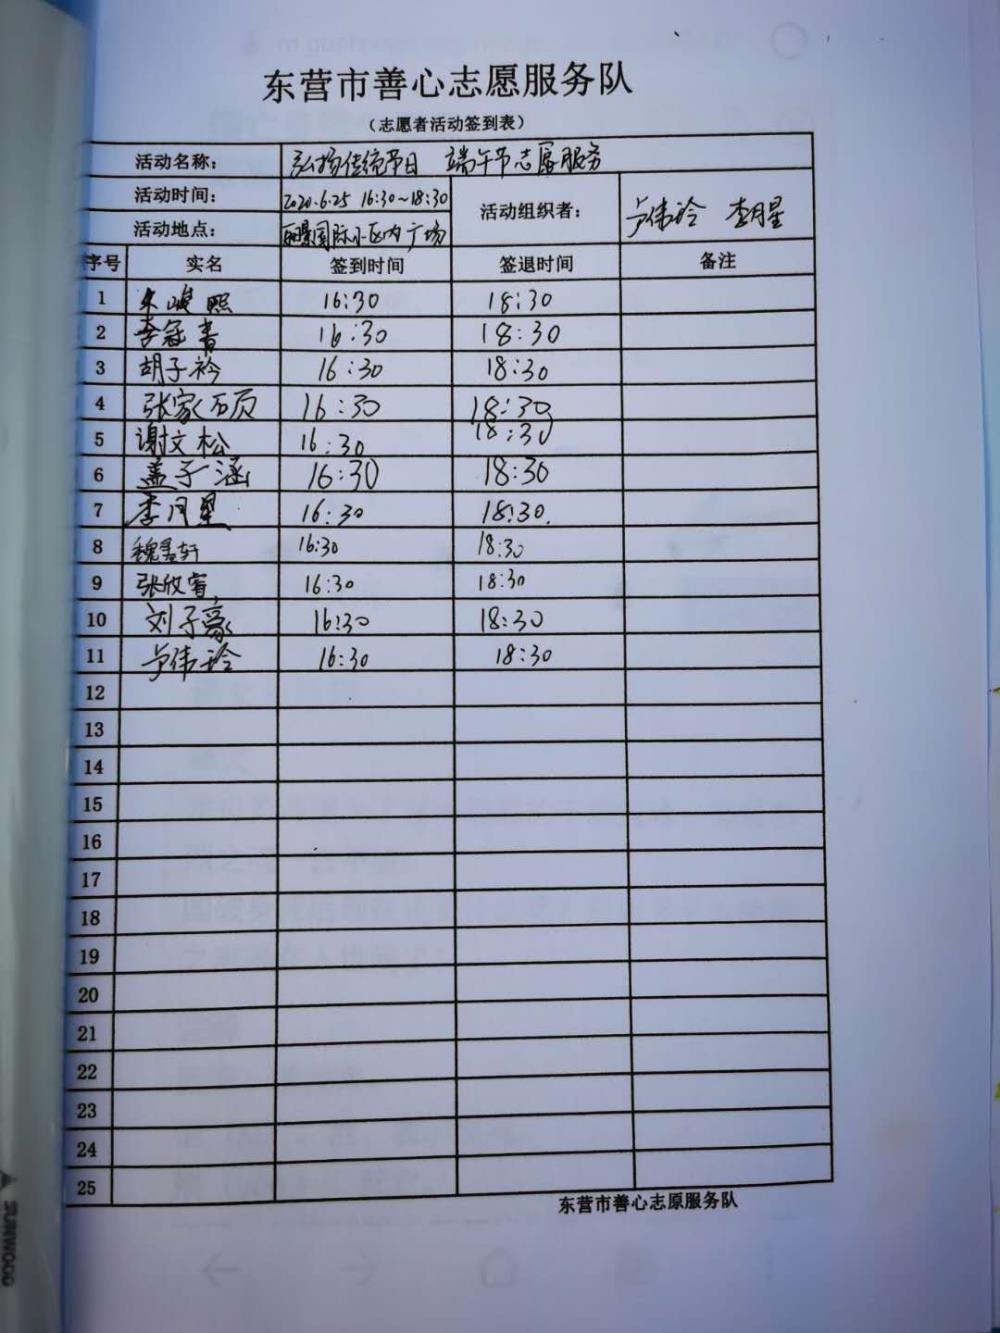 东营市善心志愿服务队
（志愿者活动签到表）
活动名称： 弘扬传统节日 端午节志愿服务
活动时间： 2020.6.25 16:30~18:30 活动组织者： 卢伟玲 李月星
活动地点： 丽景国际小区内广场
序号 实名 签到时间 签退时间 备注
1 朱峻熙 16:30 18:30
2 李冠青 16:30 18:30
3 胡子衿 16:30 18:30
4 张家硕 16:30 18:30
5 谢文松 16:30 18:30
6 盖子涵 16:30 18:30
7 李月星 16:30 18:30
8 魏轩 16:30 18:30
9 张欣睿 16:30 18:30
10 刘子豪 16:30 18:30
11 卢伟玲 16:30 18:30
12
13
14
15
16
17
18
19
20
21
22
23
24
25
东营市善心志原服务队
SUNWOOD